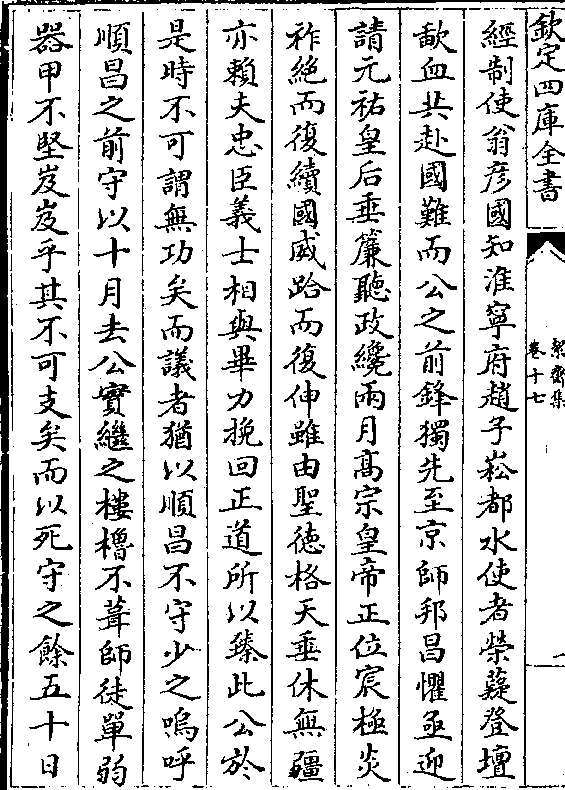 欽定四庫全書
絜齋集
卷十七
經制使翁彦國知淮寧府趙子崧都水使者榮薿登壇
歃血共赴國難而公之前鋒獨先至京師邦昌懼亟迎
請元祐皇后垂簾聽政纔兩月髙宗皇帝正位宸極炎
祚絶而復續國威跲而復伸雖由聖徳格天垂休無疆
亦賴夫忠臣義士相與畢力挽回正道所以臻此公於
是時不可謂無功矣而議者猶以順昌不守少之嗚呼
順昌之前守以十月去公實繼之樓櫓不葺師徒單弱
器甲不堅岌岌乎其不可支矣而以死守之餘五十日